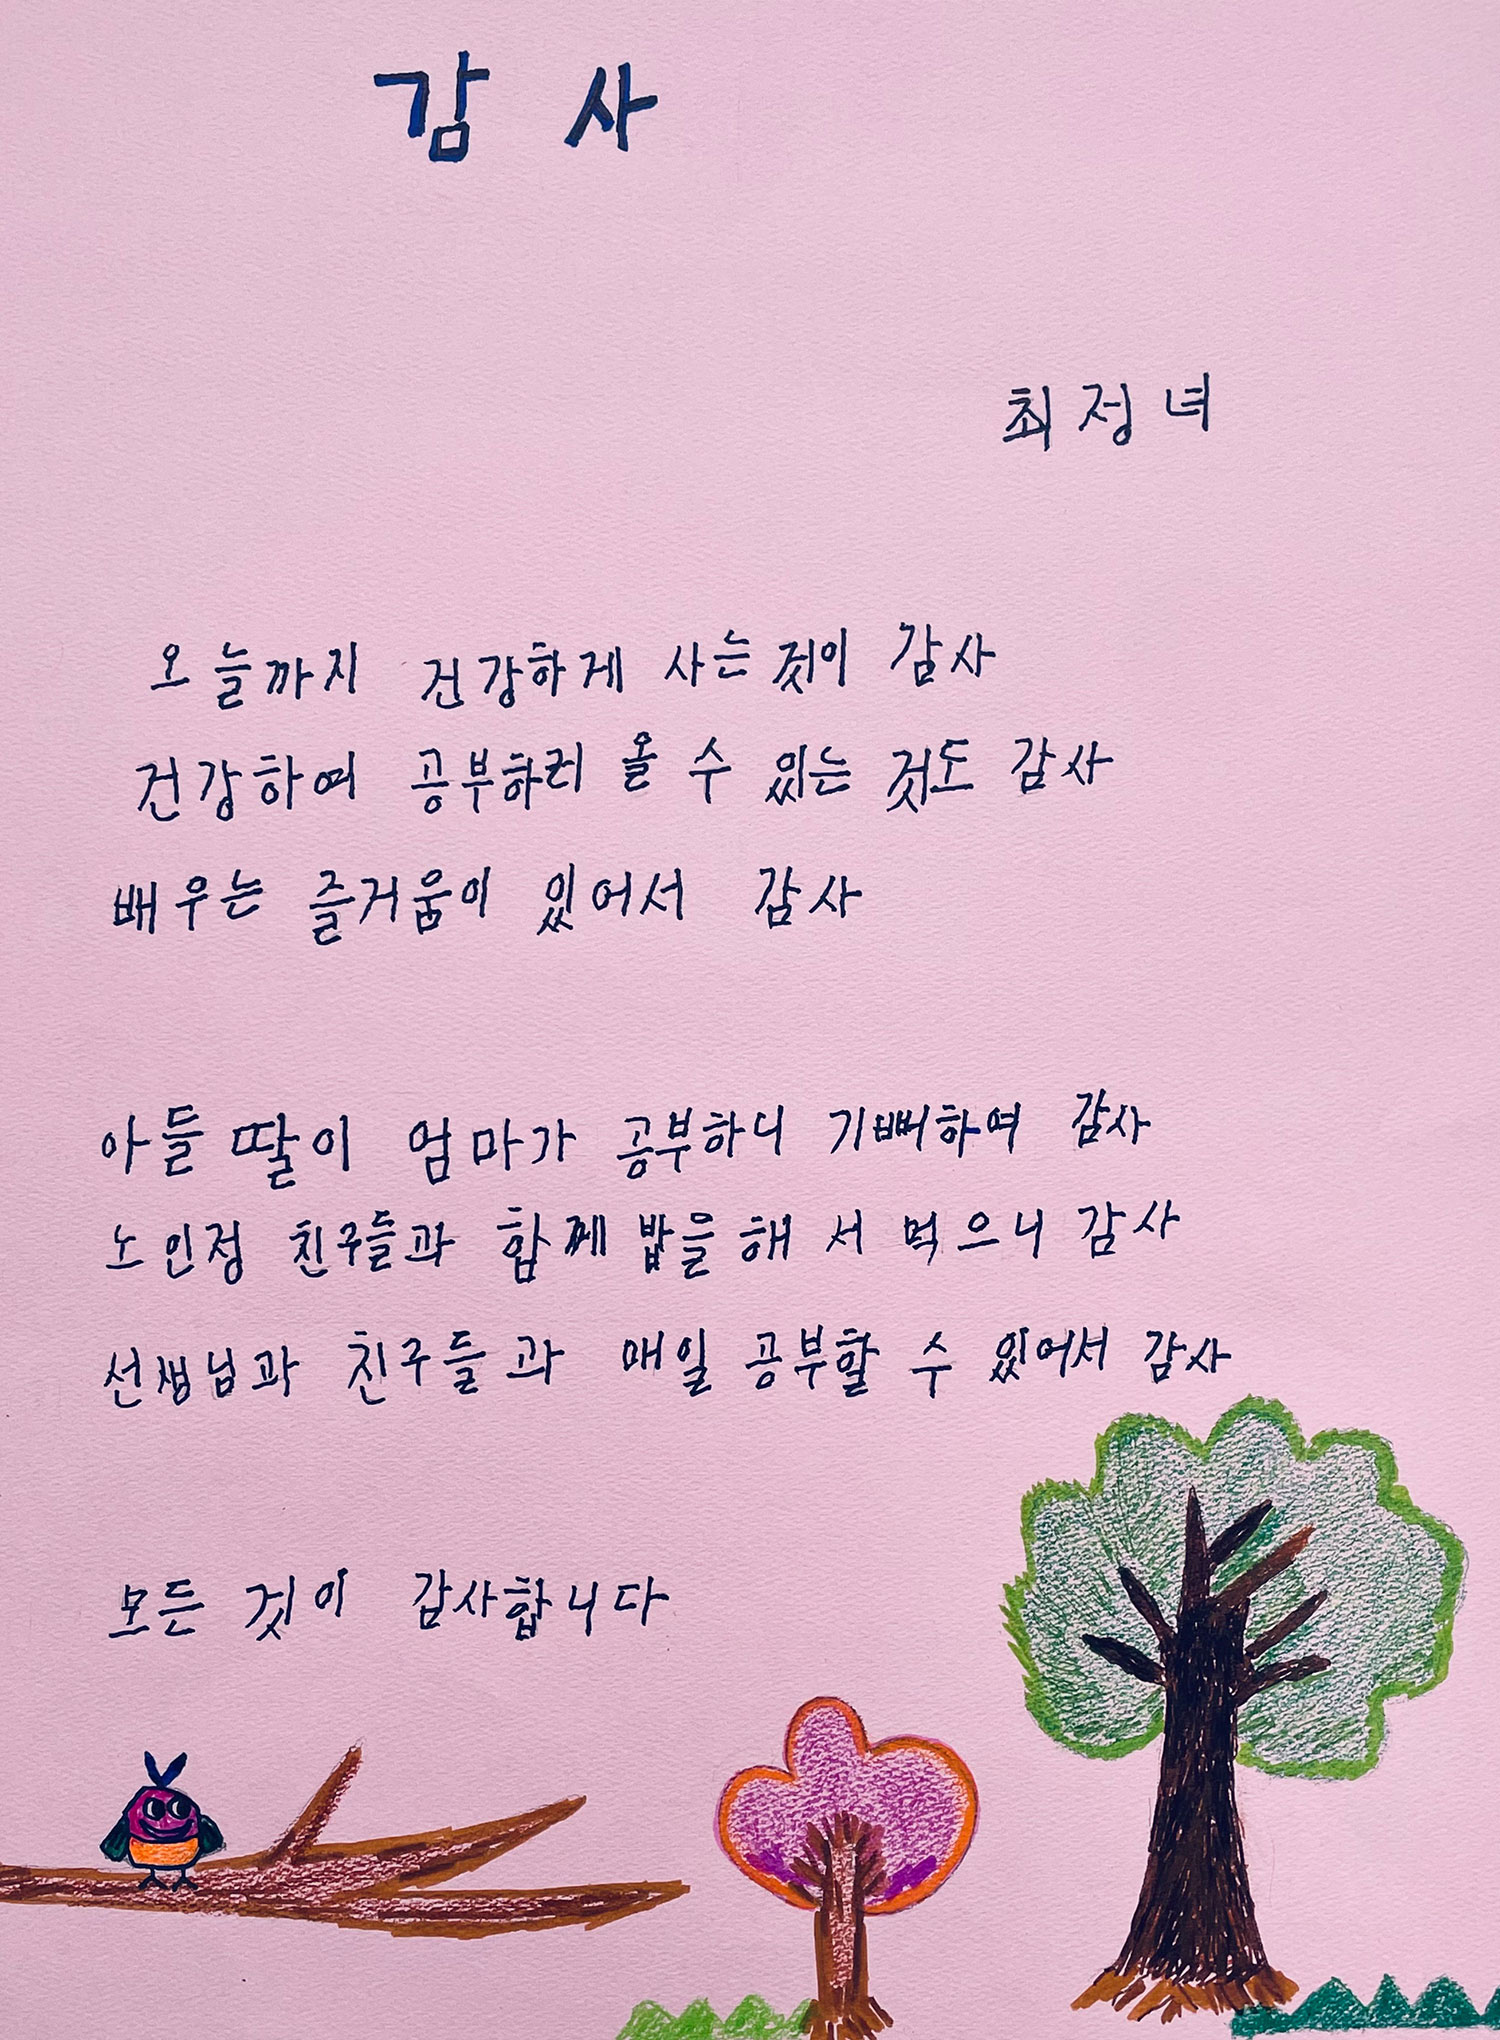 감 사
최 정 녀
오늘까지 건강하게 사는 것이 감사
건강하여 공부하러 올 수 있는 것도 감사
배우는 즐거움이 있어서 감사
아들 딸이 엄마가 공부하니 기뻐하여 감사
노인정 친구들과 함께 밥을 해서 먹으니 감사
선생님과 친구들과 매일 공부할 수 있어서 감사
모든 것이 감사합니다